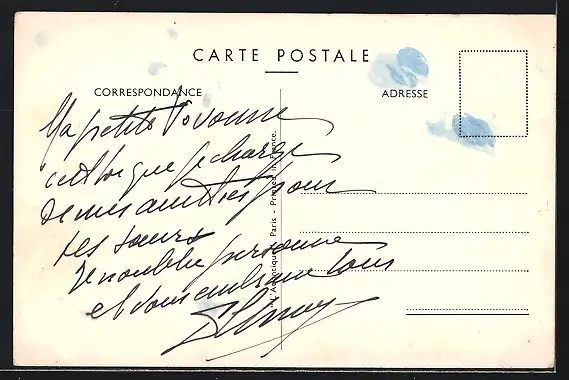 CARTE POSTALE
CORRESPONDANCE
ADRESSE
Ma petite Yvonne
que je charge
de mes amitiés pour
tes sœurs
Je n'oublie personne
et vous embrasse tous
Paris - Printed in France.